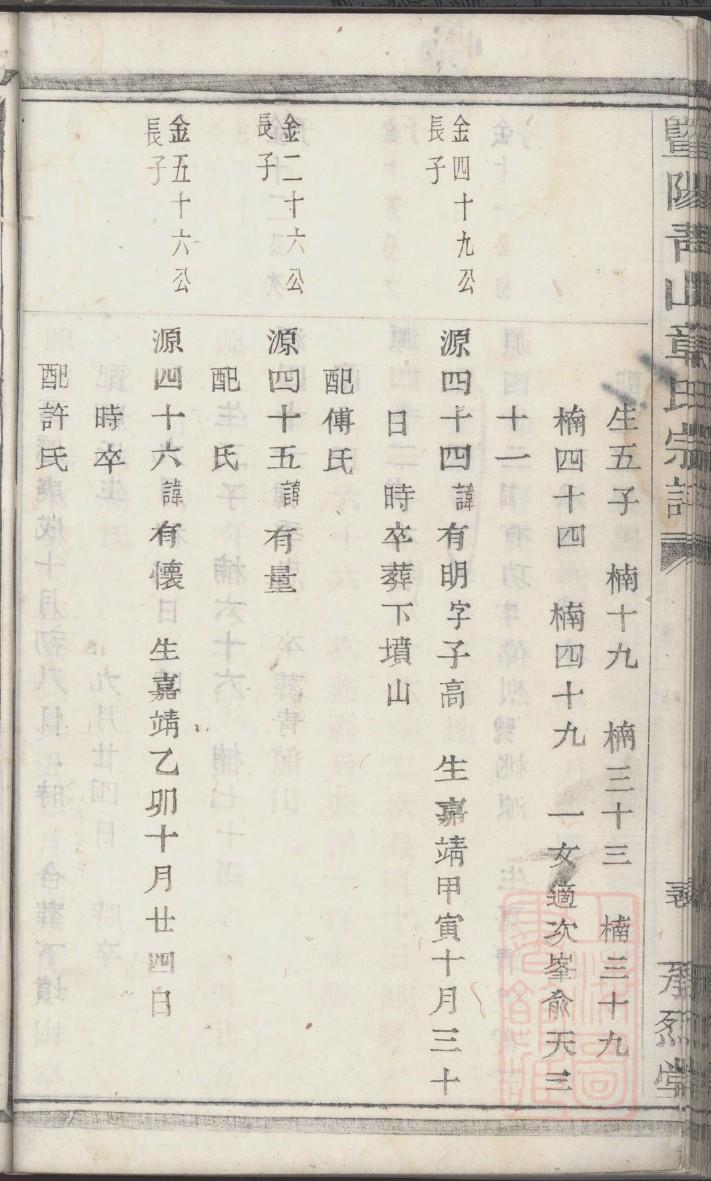 暨陽青山章氏宗譜
承烈堂
生五子 楠十九 楠三十三 楠三十九
楠四十四 楠四十九 一女適次峯俞天三
十一
金四十九公
長子
源四十四諱有明字子高 生嘉靖甲寅十月三十
日 時卒葬下墳山
配傅氏
金二十六公
長子
源四十五諱有量
配 氏
金五十六公
長子
源四十六諱有懷 生嘉靖乙卯十月廿四日
時卒
配許氏